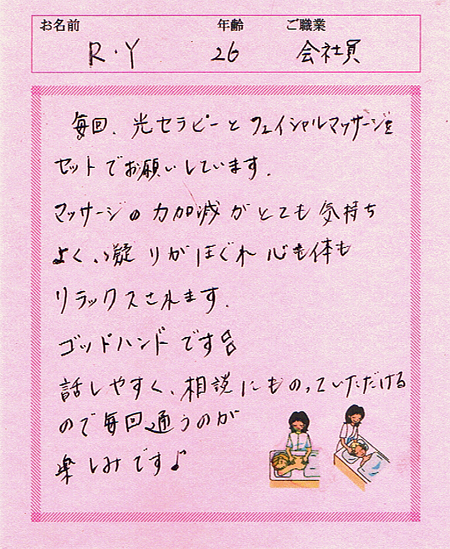 お名前 年齢 ご職業
R・Y 26 会社員
毎回、光セラピーとフェイシャルマッサージを
セットでお願いしています。
マッサージの力加減がとても気持ち
よく、凝りがほぐれ心も体も
リラックスされます。
ゴッドハンドです
話しやすく、相談にものっていただける
ので毎回通うのが
楽しみです♪